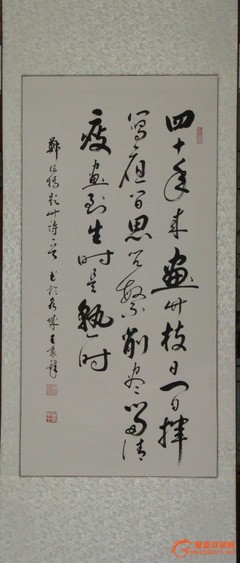 四十年来畫竹枝日間揮
寫夜間思冗繁削盡留清
瘦畫到生時是熟時
鄭板橋題竹詩一首